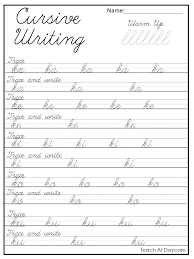 Cursive Name:
Writing Warm Up
Trace
ka ka ka ka
Trace and write
ka ka ka
Trace
ke ke ke ke
Trace and write
ke ke ke
Trace
ki ki ki ki
Trace and write
ki ki ki
Trace
ko ko ko ko
Trace and write
ko ko ko
Trace
ku ku ku ku
Trace and write
ku ku ku
Teach At Daycare